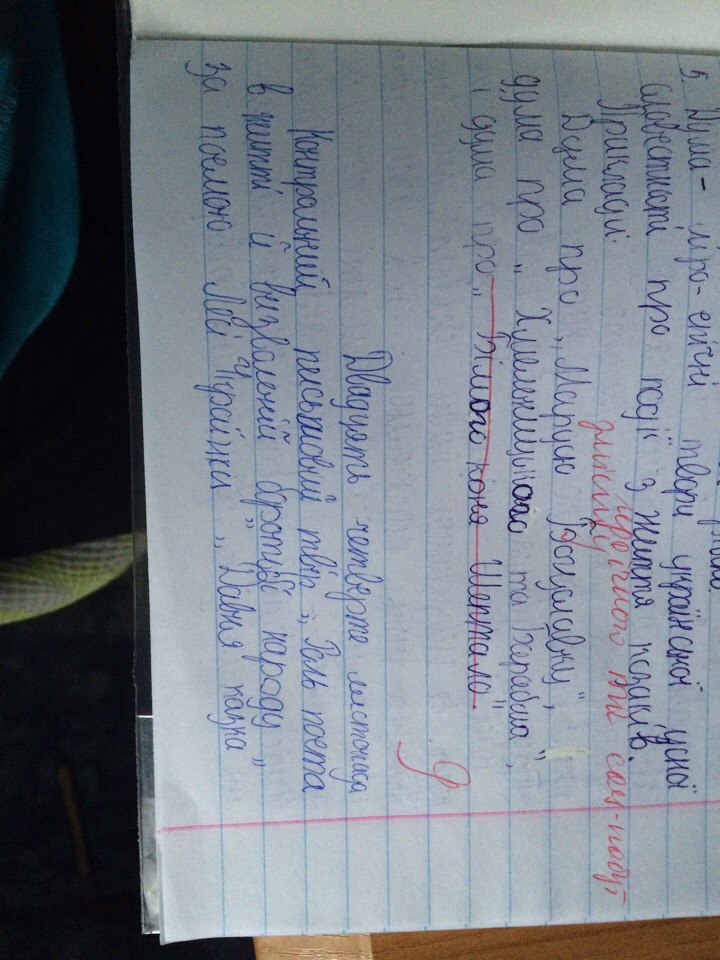 5. Дума - ліро-епічні твори української усної
словестності про події з життя козаків.
героїчного та соц-побут
Приклади:
Дума про „Марусю Богуславку",
дума про „Хмельницького та Барабаша",
і дума про „Білого коня Шептало".
9
Двадцять четверте листопада
Контрольний письмовий твір „Роль поета
в житті й визвольній боротьбі народу"
за поемою Лесі Українки „Давня казка